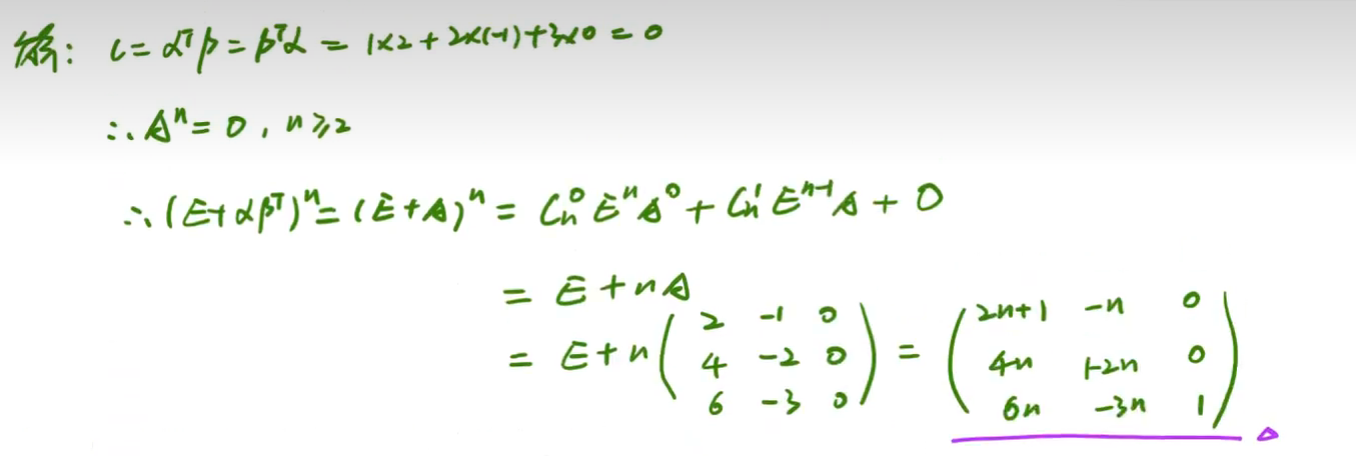 解: l=αᵀβ=βᵀα = 1×2+2×(-1)+3×0=0
∴Aⁿ=0, n≥2
∴(E+αβᵀ)ⁿ=(E+A)ⁿ = Cₙ⁰EⁿA⁰+Cₙ¹Eⁿ⁻¹A+0
= E+nA
= E+n( 2 -1 0 4 -2 0 6 -3 0 ) = ( 2n+1 -n 0 4n 1-2n 0 6n -3n 1 )